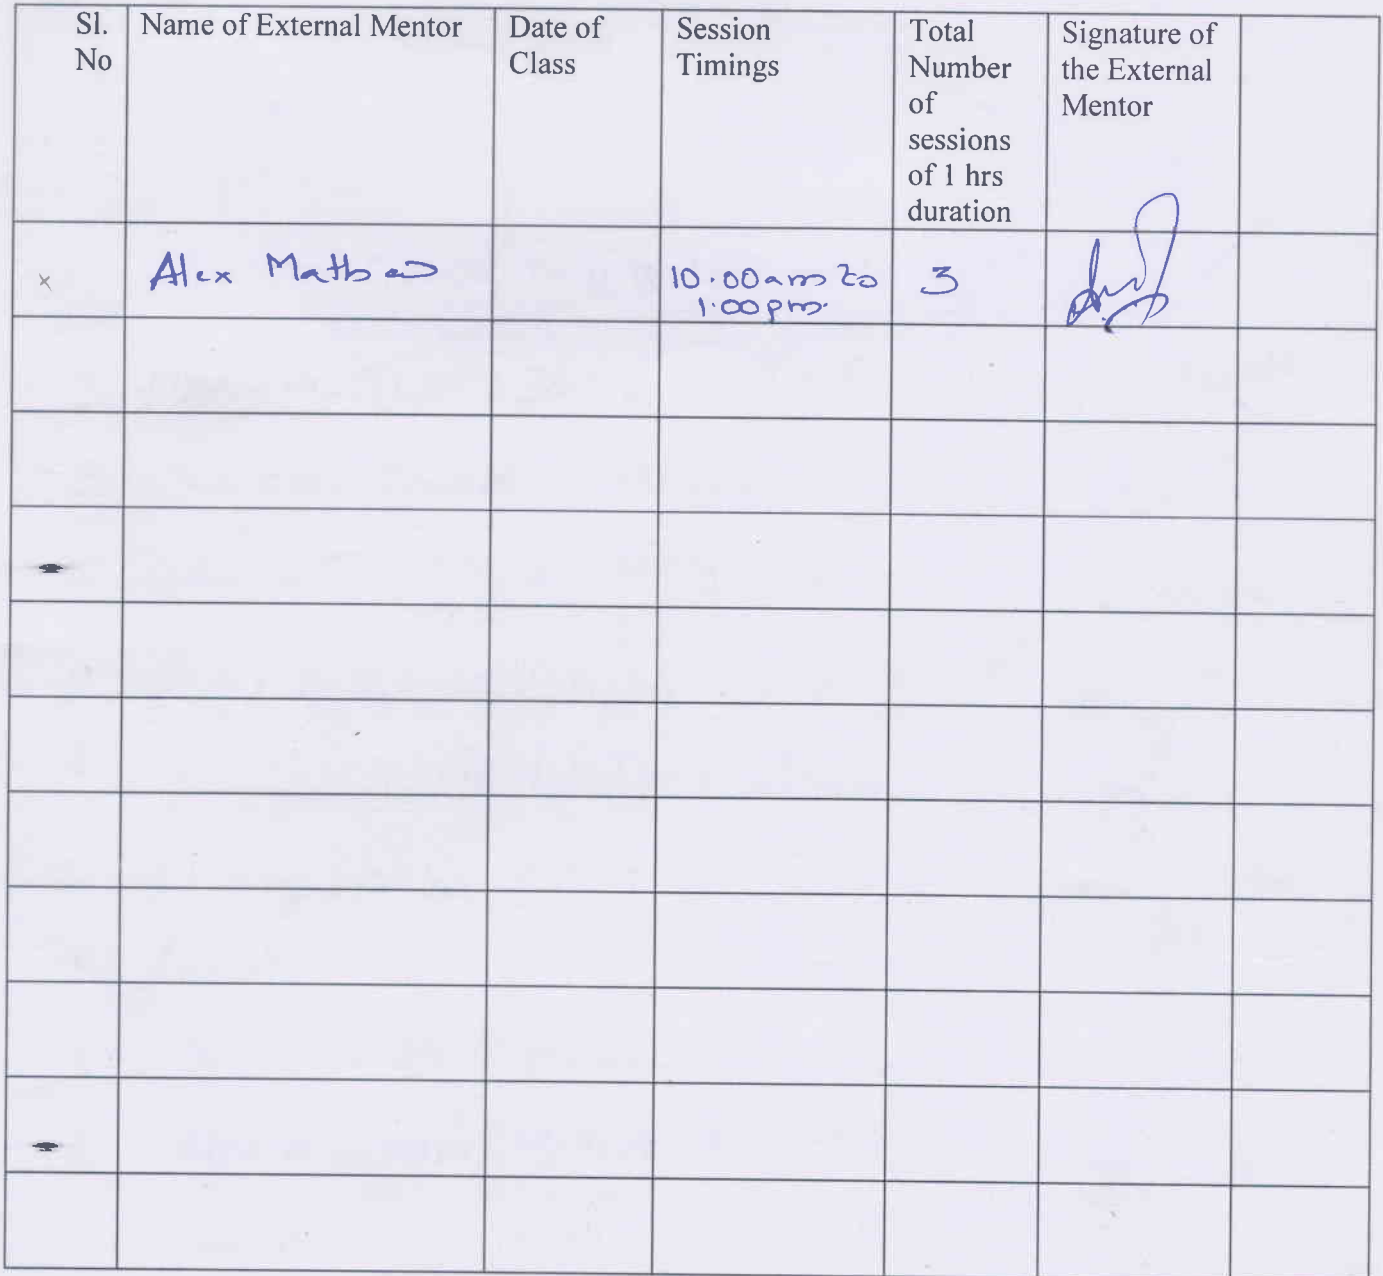 Sl. No
Name of External Mentor
Date of Class
Session Timings
Total Number of sessions of 1 hrs duration
Signature of the External Mentor
x
Alex Mathew
10.00am to
1.00pm.
3